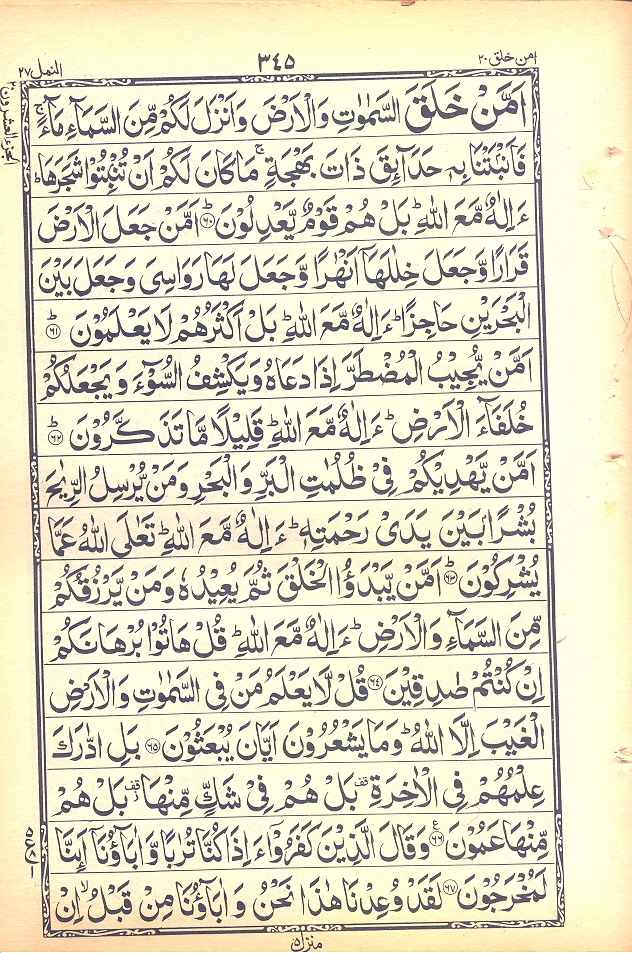 امن خلق ٢٠
٣٤٥
النمل ٢٧
اَمَّنْ خَلَقَ السَّمٰوٰتِ وَالْاَرْضَ وَاَنْزَلَ لَكُمْ مِّنَ السَّمَآءِ مَآءً ۚ
فَاَنْۢبَتْنَا بِهٖ حَدَآئِقَ ذَاتَ بَهْجَةٍ ۚ مَا كَانَ لَكُمْ اَنْ تُنْۢبِتُوْا شَجَرَهَا ؕ
ءَاِلٰهٌ مَّعَ اللّٰهِ ؕ بَلْ هُمْ قَوْمٌ يَّعْدِلُوْنَ ؕ﴿۶۰﴾ اَمَّنْ جَعَلَ الْاَرْضَ
قَرَارًا وَّجَعَلَ خِلٰلَهَاۤ اَنْهٰرًا وَّجَعَلَ لَهَا رَوَاسِيَ وَجَعَلَ بَيْنَ
الْبَحْرَيْنِ حَاجِزًا ؕ ءَاِلٰهٌ مَّعَ اللّٰهِ ؕ بَلْ اَكْثَرُهُمْ لَا يَعْلَمُوْنَ ؕ﴿۶۱﴾
اَمَّنْ يُّجِيْبُ الْمُضْطَرَّ اِذَا دَعَاهُ وَيَكْشِفُ السُّوْٓءَ وَيَجْعَلُكُمْ
خُلَفَآءَ الْاَرْضِ ؕ ءَاِلٰهٌ مَّعَ اللّٰهِ ؕ قَلِيْلًا مَّا تَذَكَّرُوْنَ ؕ﴿۶۲﴾
اَمَّنْ يَّهْدِيْكُمْ فِيْ ظُلُمٰتِ الْبَرِّ وَالْبَحْرِ وَمَنْ يُّرْسِلُ الرِّيٰحَ
بُشْرًۢا بَيْنَ يَدَيْ رَحْمَتِهٖ ؕ ءَاِلٰهٌ مَّعَ اللّٰهِ ؕ تَعٰلَى اللّٰهُ عَمَّا
يُشْرِكُوْنَ ؕ﴿۶۳﴾ اَمَّنْ يَّبْدَؤُا الْخَلْقَ ثُمَّ يُعِيْدُهٗ وَمَنْ يَّرْزُقُكُمْ
مِّنَ السَّمَآءِ وَالْاَرْضِ ؕ ءَاِلٰهٌ مَّعَ اللّٰهِ ؕ قُلْ هَاتُوْا بُرْهَانَكُمْ
اِنْ كُنْتُمْ صٰدِقِيْنَ ﴿۶۴﴾ قُلْ لَّا يَعْلَمُ مَنْ فِي السَّمٰوٰتِ وَالْاَرْضِ
الْغَيْبَ اِلَّا اللّٰهُ ؕ وَمَا يَشْعُرُوْنَ اَيَّانَ يُبْعَثُوْنَ ﴿۶۵﴾ بَلِ ادّٰرَكَ
عِلْمُهُمْ فِي الْاٰخِرَةِ ۟ بَلْ هُمْ فِيْ شَكٍّ مِّنْهَا ۟ بَلْ هُمْ
مِّنْهَا عَمُوْنَ ﴿۶۶﴾ وَقَالَ الَّذِيْنَ كَفَرُوْۤا ءَاِذَا كُنَّا تُرٰبًا وَّاٰبَآؤُنَاۤ اَئِنَّا
لَمُخْرَجُوْنَ ﴿۶۷﴾ لَقَدْ وُعِدْنَا هٰذَا نَحْنُ وَاٰبَآؤُنَا مِنْ قَبْلُ ۙ اِنْ
منزل ۵